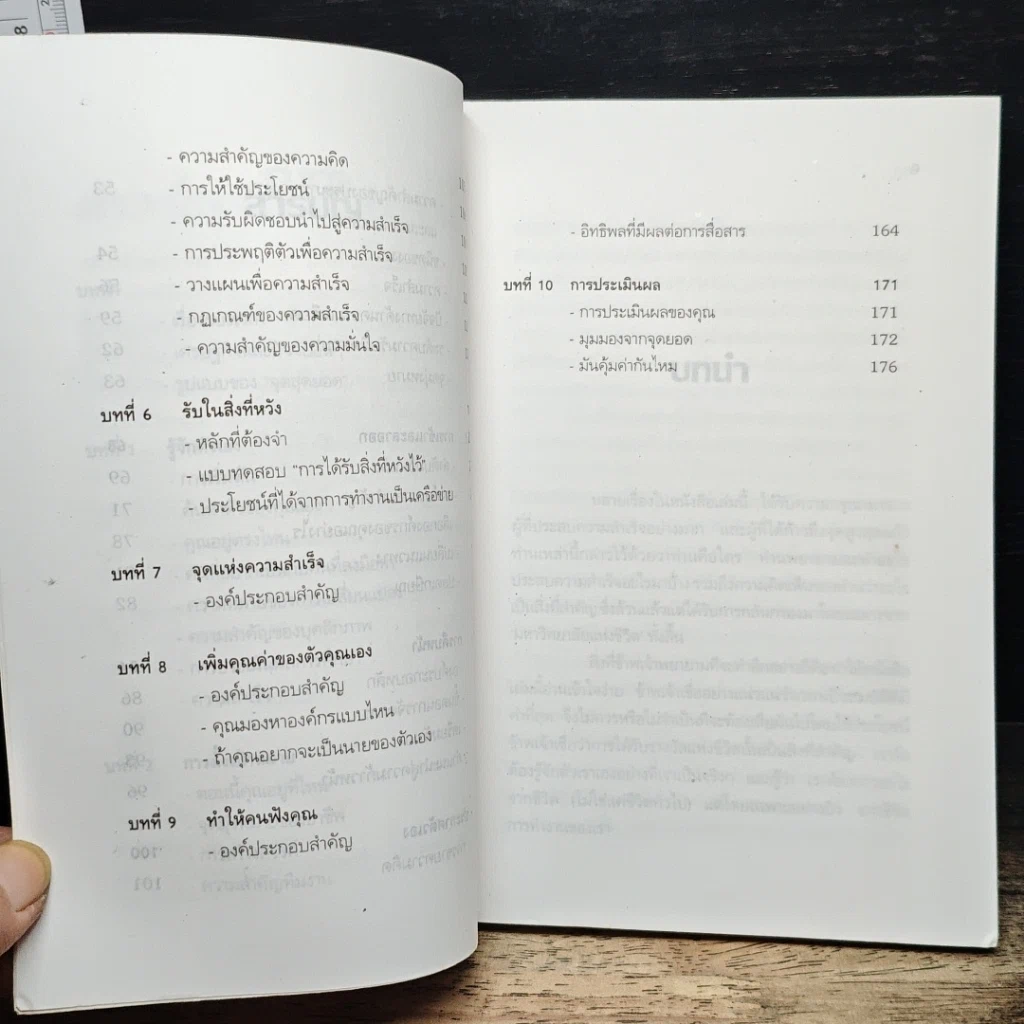 - ความสำคัญของความคิด
- การให้ใช้ประโยชน์
- ความรับผิดชอบนำไปสู่ความสำเร็จ
- การประพฤติตัวเพื่อความสำเร็จ
- วางแผนเพื่อความสำเร็จ
- กฎเกณฑ์ของความสำเร็จ
- ความสำคัญของความมั่นใจ
บทที่ 6 รับในสิ่งที่หวัง
- หลักที่ต้องจำ
- แบบทดสอบ "การได้รับสิ่งที่หวังไว้"
- ประโยชน์ที่ได้จากการทำงานเป็นเครือข่าย
บทที่ 7 จุดแห่งความสำเร็จ
- องค์ประกอบสำคัญ
บทที่ 8 เพิ่มคุณค่าของตัวคุณเอง
- องค์ประกอบสำคัญ
- คุณมองหาองค์กรแบบไหน
- ถ้าคุณอยากจะเป็นนายของตัวเอง
บทที่ 9 ทำให้คนฟังคุณ
- องค์ประกอบสำคัญ
- อิทธิพลที่มีผลต่อการสื่อสาร 164
บทที่ 10 การประเมินผล 171
- การประเมินผลของคุณ 171
- มุมมองจากจุดยอด 172
- มันคุ้มค่ากันไหม 176
บทนำ